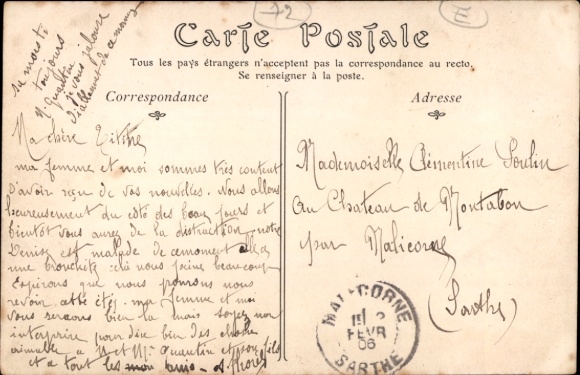 72
Carte Postale
Tous les pays étrangers n'acceptent pas la correspondance au recto.
Se renseigner à la poste.
Correspondance
Adresse
toujours
Quentin
vous jalouse
d'allement de ce moment
Ma chère Titine
ma femme et moi sommes très content
d'avoir reçu de vos nouvelles. Nous allons
heureusement du côté des beaux jours et
bientôt vous aurez de la distraction notre
Denise est malade de ce moment elle a
une bronchite qui nous peine beaucoup
Espérons que nous pourrons nous
revoir cette été. ma femme et moi
vous serrons bien la main soyez mon
interprire pour dire bien des chose
aimable a M et Mme Quentin et son fils
et a tout les mon amis
Mademoiselle Clémentine Poulin
au Chateau de Montabon
par Malicorne
(Sarthe)
MALICORNE
FEVR
06
SARTHE